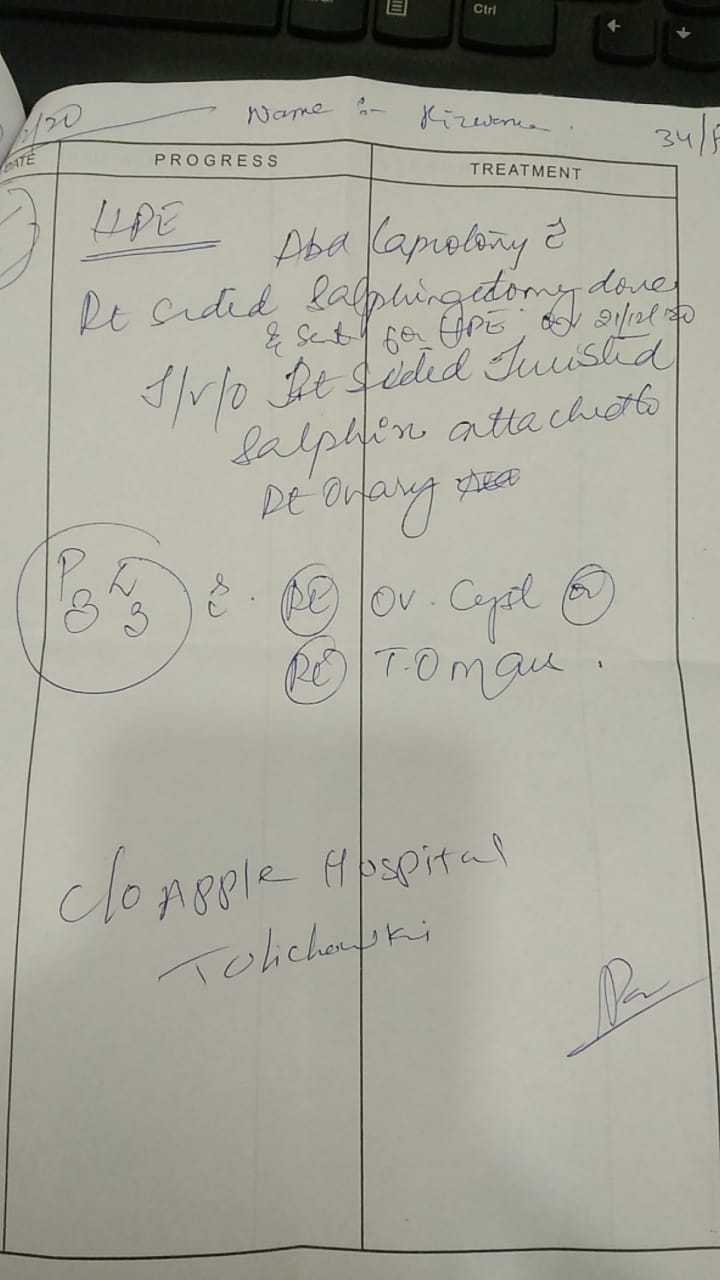 Ctrl
/20 Name :- Rizwana . 34/F
DATE PROGRESS TREATMENT
HPE
Abd Laprotomy c̄
Rt sided Salphingectomy done
& sent for HPE on 21/12/20
I/V/O Rt sided Twisted
Salphinx attached to
Rt Ovary
P3 L3 c̄ . Rt OV. Cyst
Rt T.O mass .
C/o Apple Hospital
Tolichowki